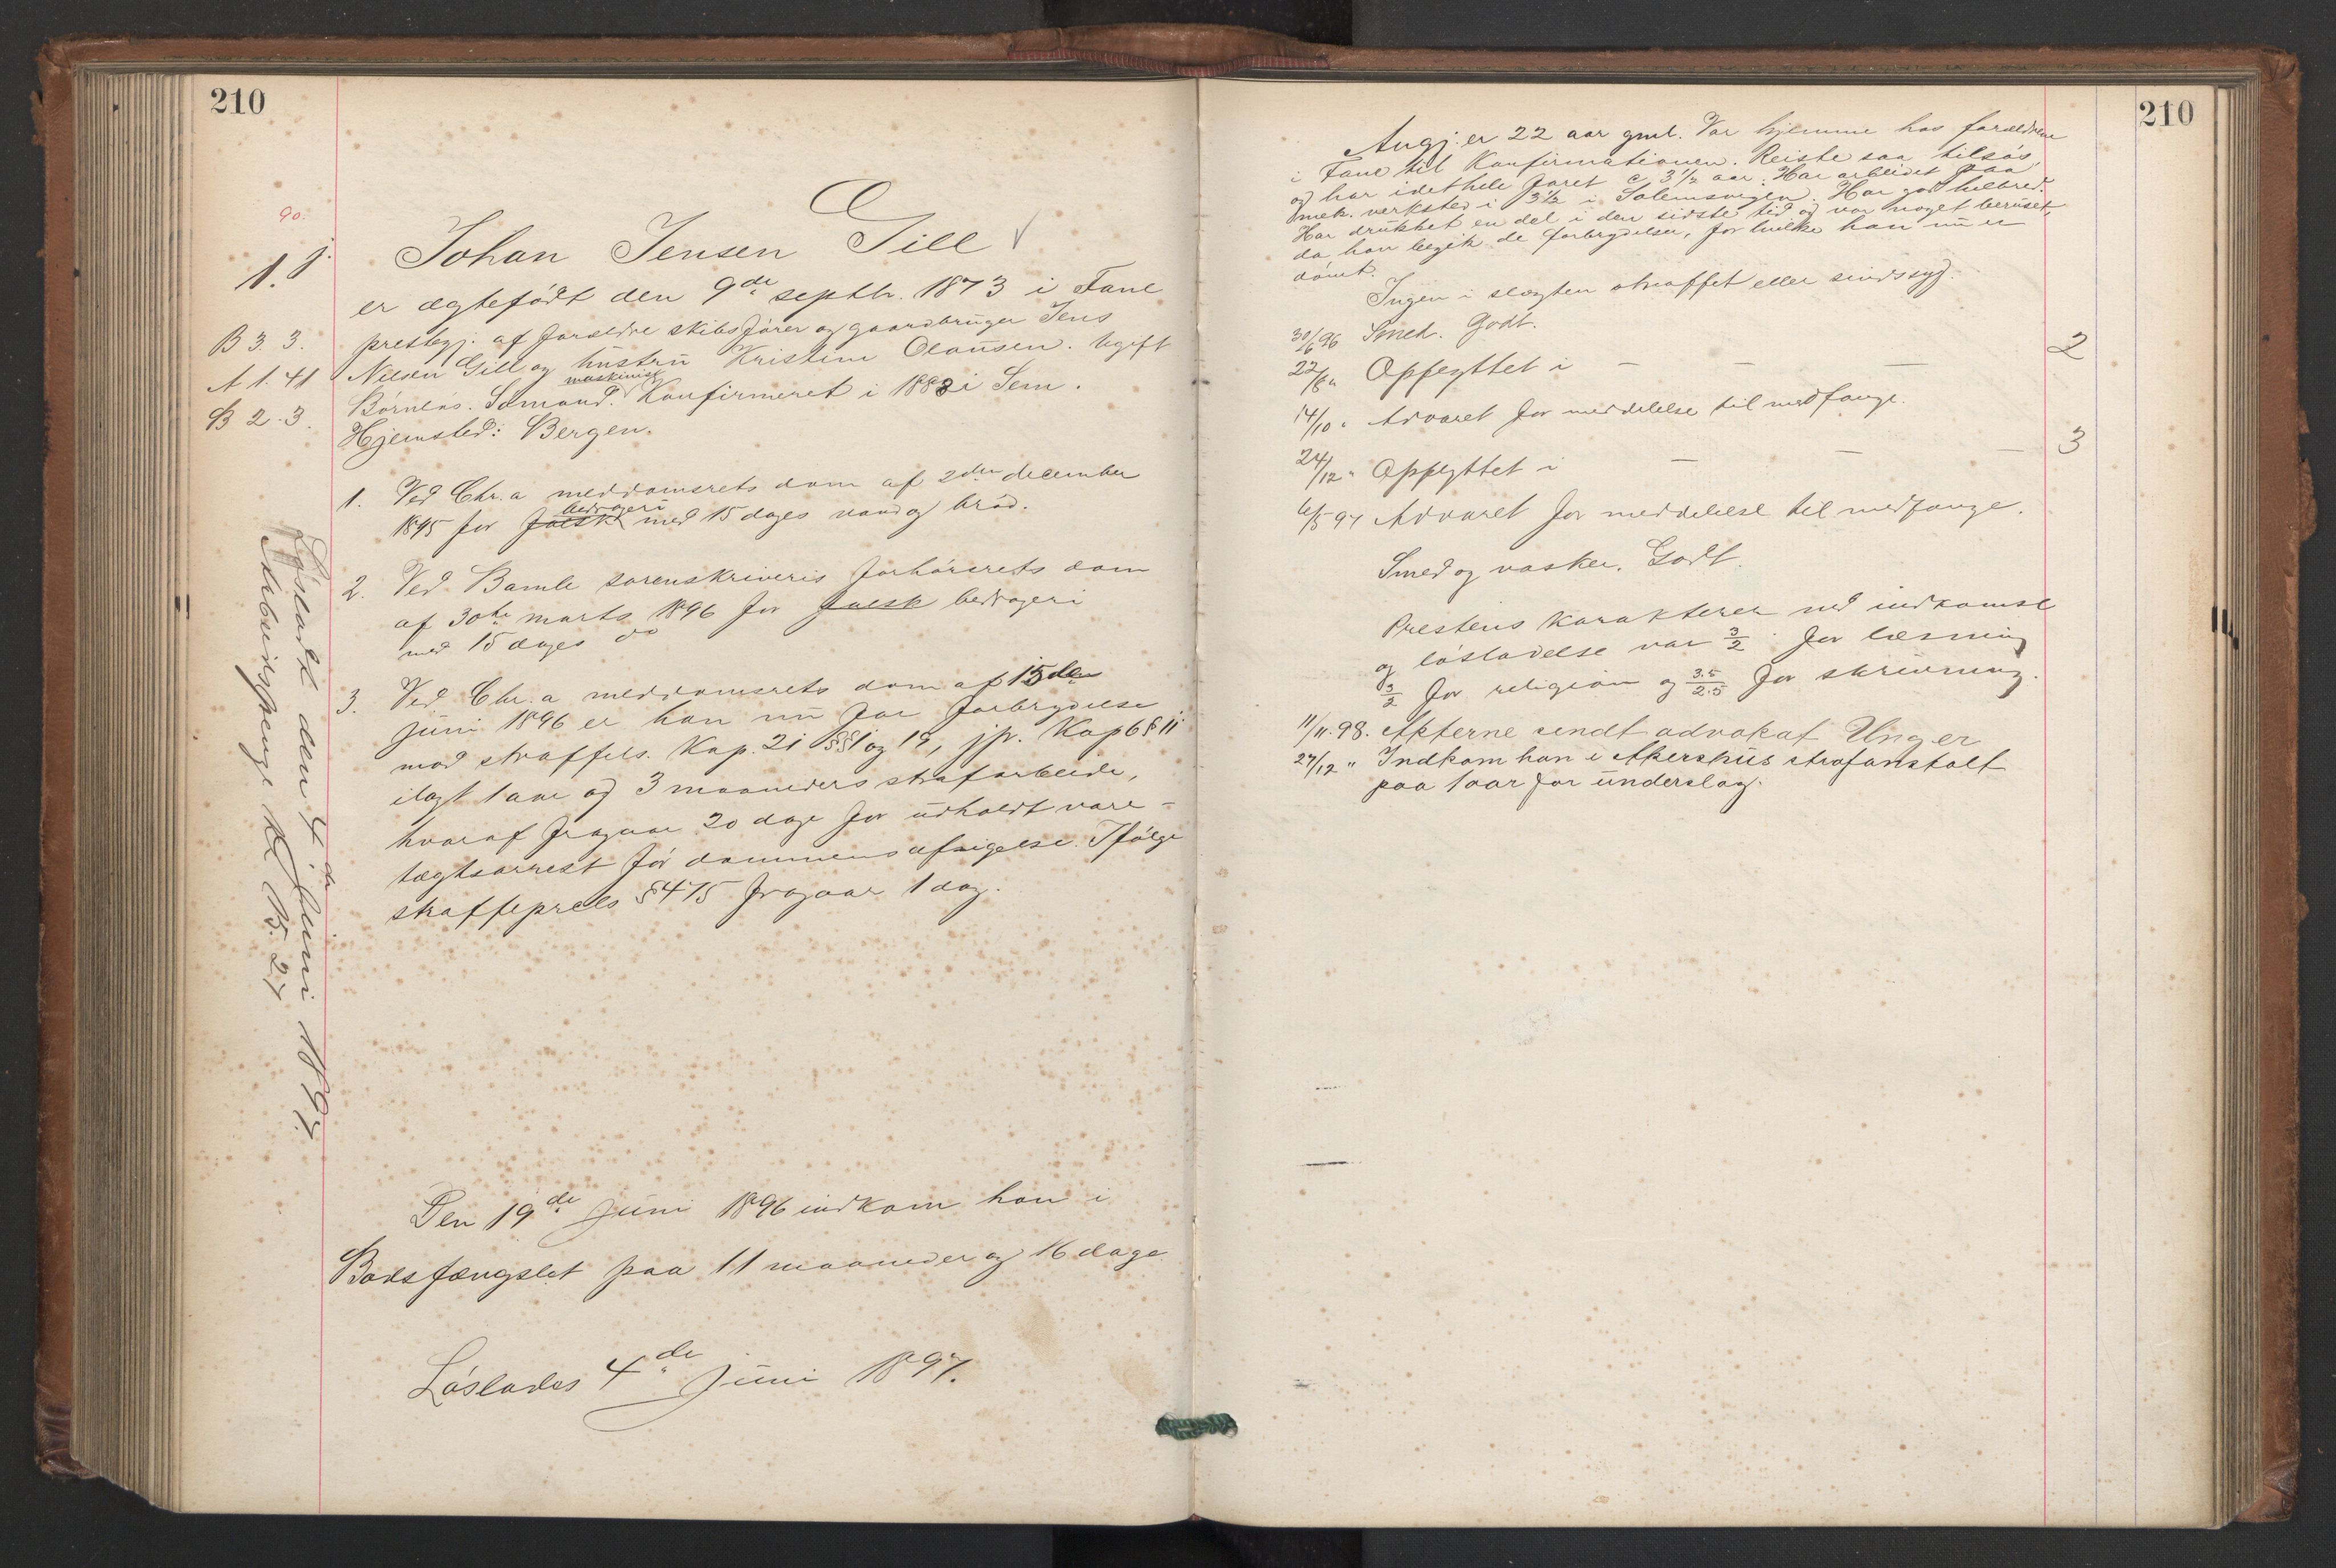 210
90.
1. j.
Johan Jensen Gill
er ægtefödt den 9de septbr. 1873 i Fane
B 3. 3.
prestegj. af forældre skibsförer og gaardbruger Jens
A 1. 41
Nilsen Gill og hustru Kristine Olausen. Ugift
B 2. 3.
maskinist
Börnlös. Sömand. Konfirmeret i 1888 i Sem.
Hjemsted: Bergen.
1. Ved Chr.a meddomsrets dom af 2den december
bedrageri
1895 for falsk med 15 dages vand og bröd.
2. Ved Bamle sorenskriveris forhörsrets dom
af 30te marts 1896 for falsk bedrageri
med 15 dages do
3. Ved Chr.a meddomsrets dom af 15de
juni 1896 er han nu for forbrydelse
mod straffels. Kap. 21 §§ 1 og 19, jfr. Kap 6 § 11
ilagt 1 aar og 3 maaneders strafarbeide,
hvoraf fragaar 20 dage for udholdt vare-
tægtsarrest för dommens afsigelse. Ifölge
straffeprcls § 475 fragaar 1 dag.
Lösladt den 4de juni 1897
Arbeidspenge Kr. 15.27
Den 19de juni 1896 indkom han i
Bodsfængslet paa 11 maaneder og 16 dage
Löslades 4de juni 1897.
210
Angj. er 22 aar gml. Var hjemme hos forældrene
i Fane til Konfirmationen. Reiste saa tilsös,
og har idethele faret c 3 1/2 aar. Har arbeidet paa
mek. verksted i 3 1/2 i Solemsvogen. Har god helbred.
Har drukket en del i den sidste tid og var noget beruset,
da han begik de forbrydelser, for hvilke han nu er
dömt.
Ingen i slægten straffet eller sindssyg.
30/6 96 Smed. Godt.
22/8 " Opflyttet i — — — 2
14/10 " Advaret for meddelelse til medfange.
24/12 " Opflyttet i — — — 3
6/5 97 Advaret for meddelelse til medfange.
Smed og vasker. Godt.
Prestens karakterer ved indkomst
og lösladelse var 3/2 for læsning
3/2 for religion og 3.5/2.5 for skrivning.
11/11. 98. Akterne sendt advokat Unger
27/12 " Indkom han i Akershus strafanstalt
paa 1 aar for underslag.